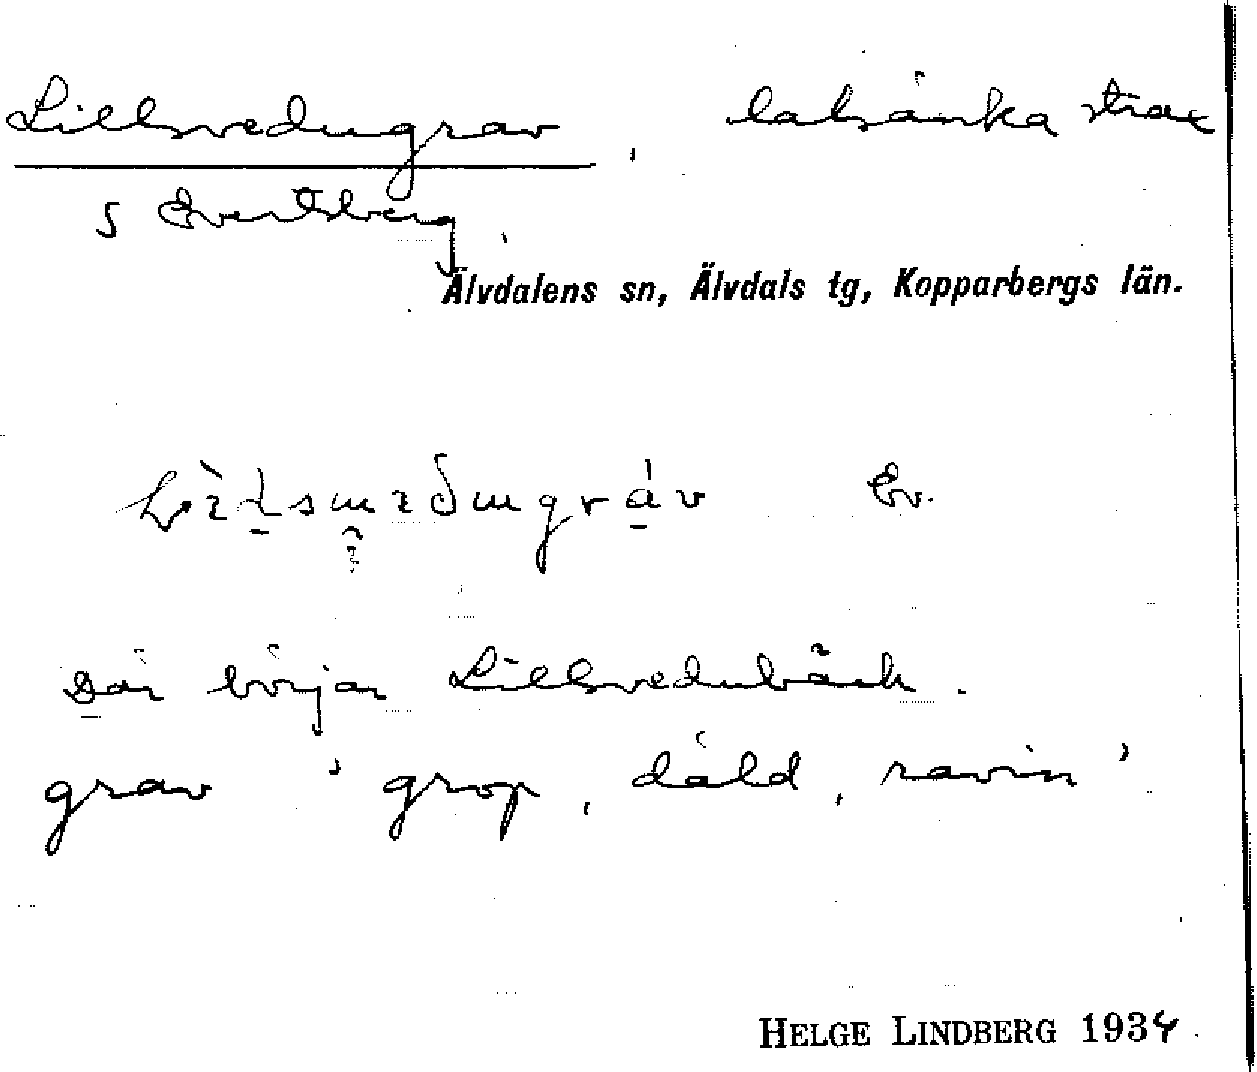 Lillsvedugrav, strax
S Evertsberg,
Älvdalens sn, Älvdals tg, Kopparbergs län.
Ev.
Där börjar Lillsvedubäck.
grav 'grop, däld, ravin'
HELGE LINDBERG 1934